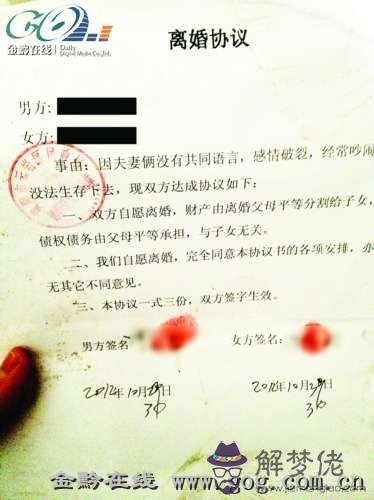 金黔在线
Daily
Digital Media Co.,Ltd
离婚协议
男方：
女方：
事由：因夫妻俩没有共同语言，感情破裂，经常吵闹
没法生存下去，现双方达成协议如下：
一、双方自愿离婚，财产由离婚父母平等分割给子女，
债权债务由父母平等承担，与子女无关。
二、我们自愿离婚，完全同意本协议书的各项安排，亦
无其它不同意见。
三、本协议一式三份，双方签字生效。
男方签名 女方签名：
2012年10月 日 2012年10月 日
30 30
金黔在线 www.gog.com.cn
解梦佬